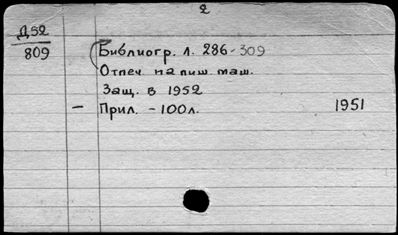 2
Д52
809
Библиогр. л. 286-309
Отпеч. на пиш. маш.
Защ. в 1952
- Прил. - 100л. 1951